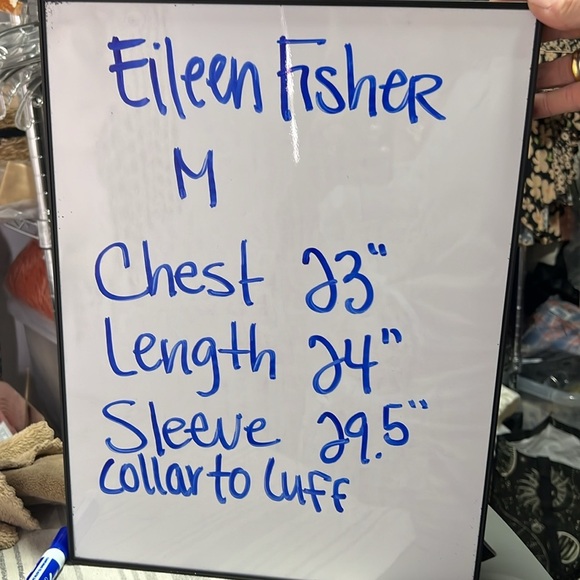 Eileen Fisher
M
Chest 23"
Length 24"
Sleeve 29.5"
Collar to Cuff